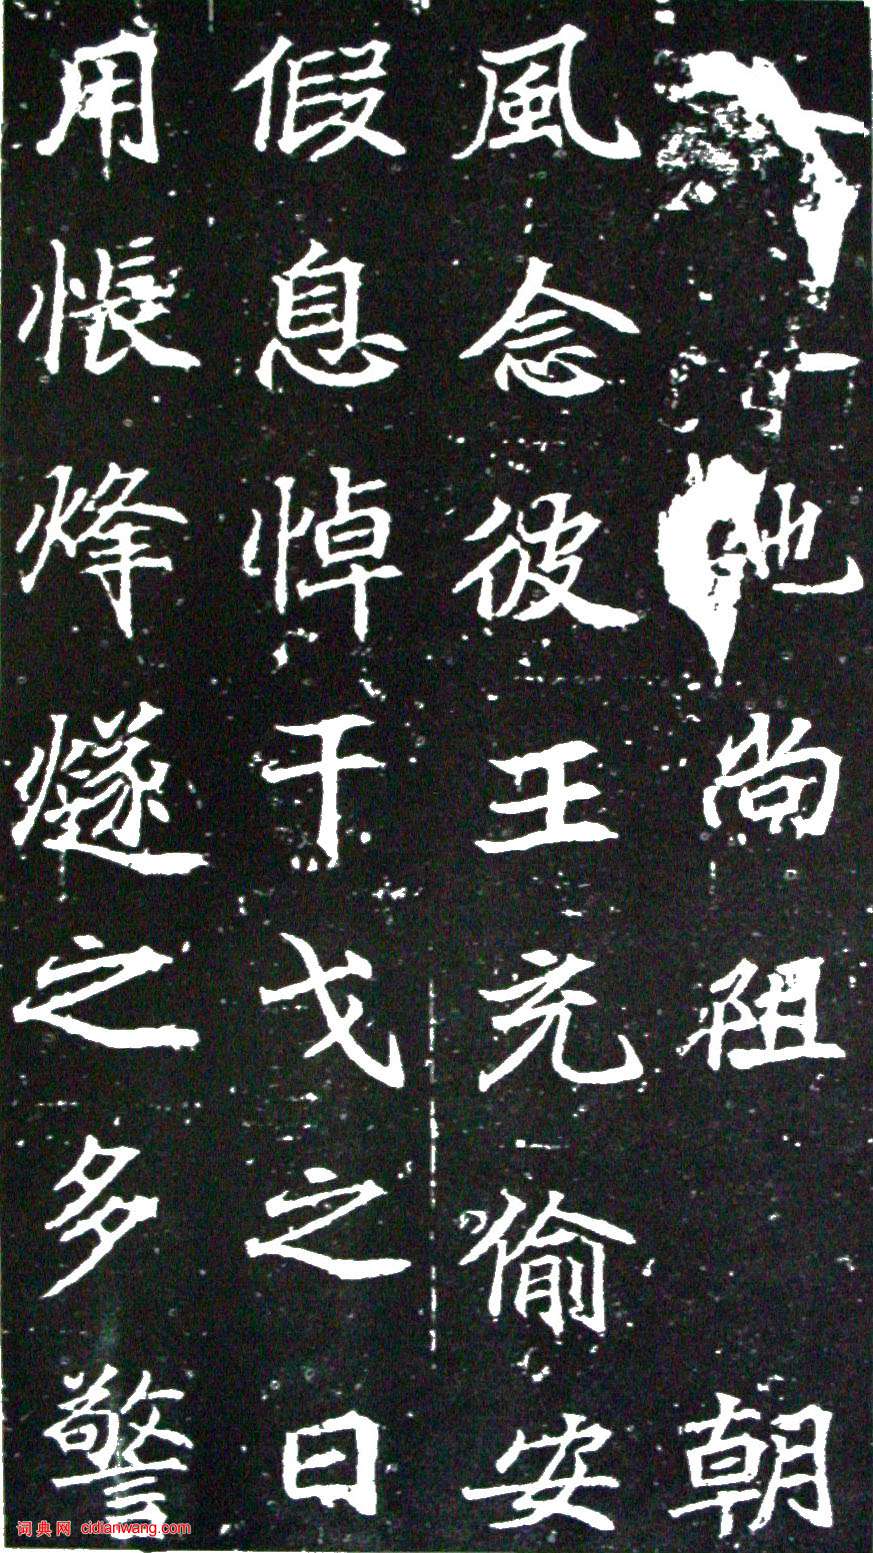 尚阻朝
風念彼王充偷安
假息悼干戈之日
用悵烽燧之多警
词典网 cidianwang.com